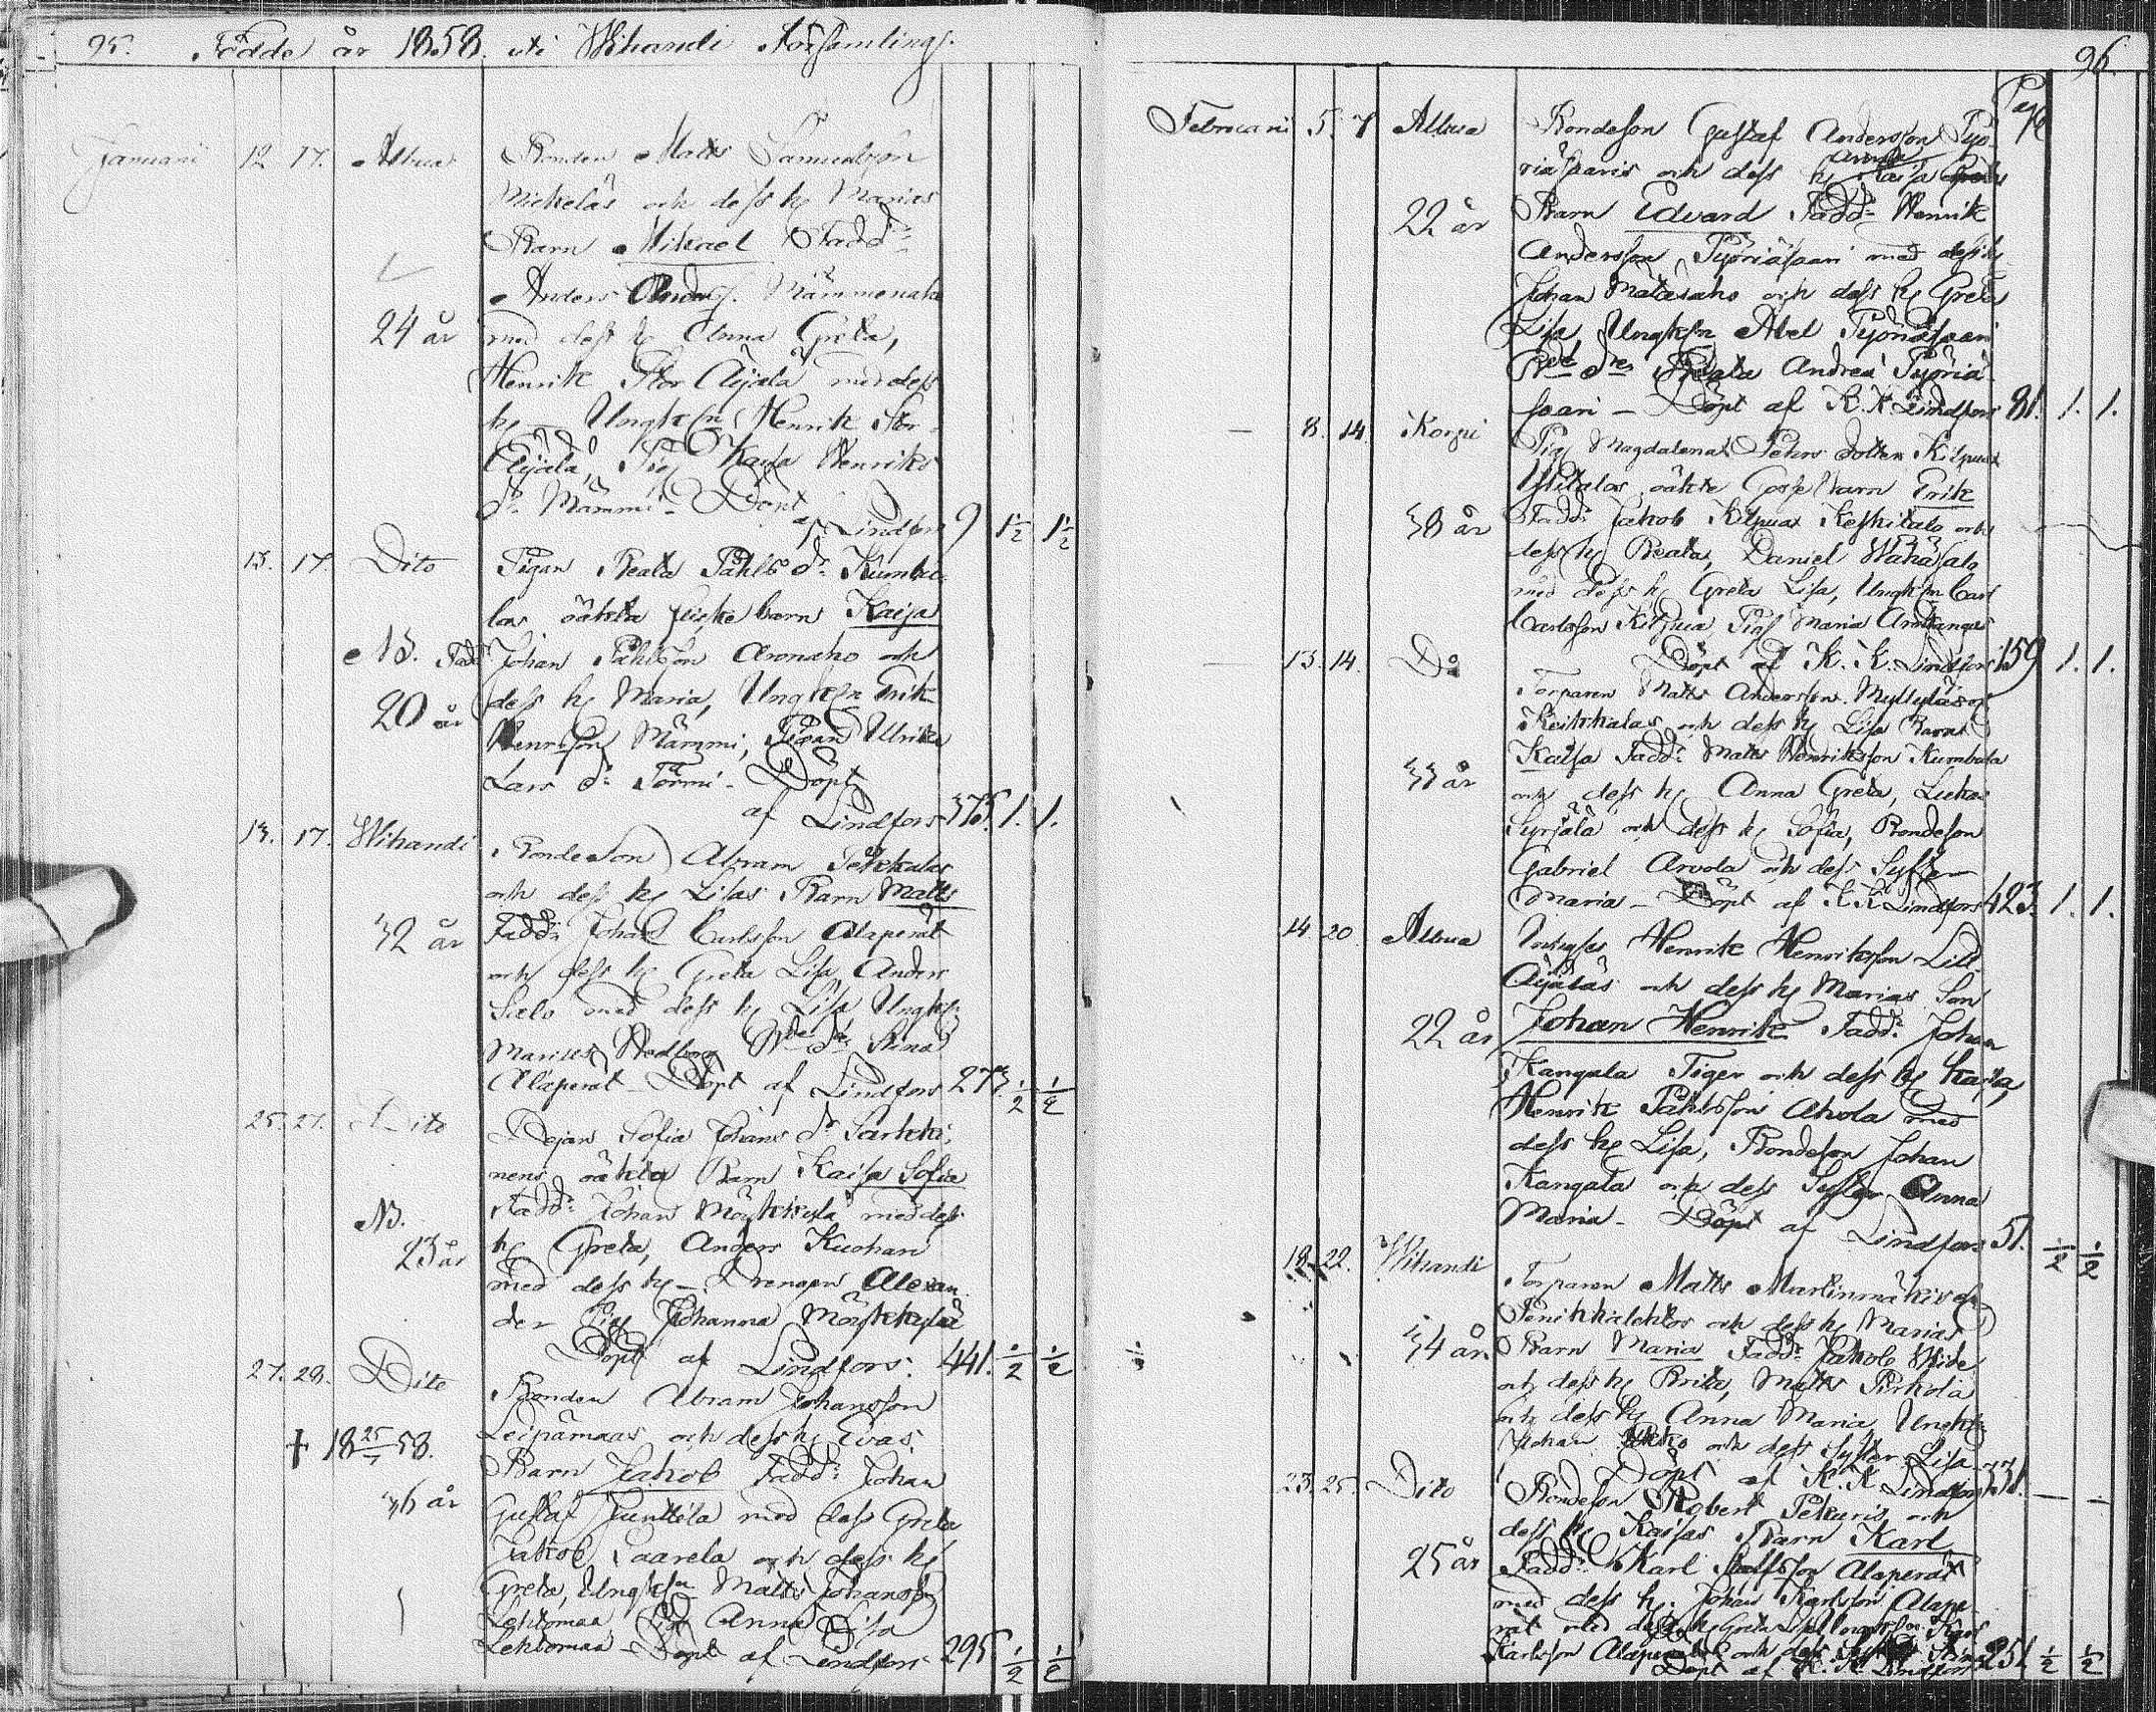 95. Födde år 1858. uti Wihandi Församling.
Januarii 12 17. Alpua Bonden Matts Samuelsson
Mickeläs och dess h. Marias
Barn Mikael Fadd:
Anders Anders. Mämmenaho
24 år med dess h. Anna Greta,
Henrik Stor Äijälä med dess
h. – Ungk:n Henrik Stor
Äijälä, Pig. Kajsa Henriks
d:r Mämmi – Döpt
af Lindfors 9 1/2 1/2
13. 17. Dito Pigan Beata Påhls d:r Kumbu-
las oäkta flicke barn Kaisa
NB. Fadd. Johan Påhlsson Aronaho och
dess h. Maria, Ungk:n Erik
20 år
Henriksson Mämmi, Pigan Ulrika
Lars d:r Törmi – Döpt
af Lindfors 375. 1. 1.
13. 17. Wihandi Bondeson Abram Pekkalas
och dess h. Lisas Barn Matts
32 år Fadd: Johan Carlsson Alaperät
och dess h. Greta Lisa, Anders
Salo med dess h. Lisa, Ungk:
Alaperät – Döpt af Lindfors 273. 1/2 1/2
25. 27. Dito Sofia Johans d:r Sarkki-
nens oäkta Barn Kaisa Sofia
NB. Fadd: Johan Möykkylä med dess
23 år h. Greta, Anders Kuohan
med dess h. – Drengen Alexan-
der Pig. Johanna Möykkylä
Döpt af Lindfors. 441. 1/2 1/2
27. 28. Dito Bonden Abram Johansson
† 18 25/ 58. Leipämaas och dess h. Evas
Barn Jakob Fadd: Johan
36 år
Gustaf Junttila med dess Greta
Jakob Saarela och dess h.
Greta, Ungk:n Matts Johansson
Lehtomaa, Pig. Anna Lisa
Lehtomaa – Döpt af Lindfors 295 1/2 1/2
96.
Pag.
Februarii 5. 7 Alpua Bondeson Gustaf Andersson Pyö-
riäsaaris och dess h. Anna
22 år Barn Edvard Fadd: Henrik
Andersson Pyöriäsaari med dess h.
Johan Mätäsaho och dess h. Greta
Lisa, Ungk:n Abel Pyöriäsaari
Andrea Pyöriä-
saari – Döpt af K. K. Lindfors 81. 1. 1.
– 8. 14. Korpi Pig. Magdalena Pehrs dotter Kilpua
Ylitalos oäkta Gosse barn Erik
38 år Fadd: Jakob Kilpua Keskitalo och
dess h. Beata, Daniel Wähäsalo
med dess h. Greta Lisa, Ungk:n Carl
Carlsson Kilpua, Pig. Maria
Döpt af K. K. Lindfors 159 1. 1.
– 13. 14. D:o Torparen Matts Andersson Myllyläs af
Keikkalas och dess h. Lisa Barn
Kaisa Fadd: Matts Henriksson Kumbula
33 år och dess h. Anna Greta, Lukas
Syrjälä och dess h. Sofia, Bondeson
Gabriel Arvola och dess Syster
Maria – Döpt af K. K. Lindfors 423. 1. 1.
14 20 Alpua Henrik Henriksson Lill
Äijäläs och dess h. Marias Son
22 år Johan Henrik Fadd: Johan
Kangala Tiger och dess h. Kajsa,
Henrik Påhlsson Ahola med
dess h. Lisa, Bondeson Johan
Kangala och dess Syster Anna
Maria – Döpt af Lindfors 51. 1/2 1/2
18. 22. Wihandi Torparen Matts Martinmäkis af
och dess h. Marias
34 år Barn Maria Fadd: Jakob
och dess h. Brita, Matts Pirkola
och dess h. Anna Maria, Ungk:
Johan och dess Syster Lisa
Döpt af K. K. Lindfors 331. – –
23. 25. Dito Bondeson Robert Pekuris och
dess h. Kaisas Barn Karl
25 år Fadd: Karl Alaperät
med dess h. Johan Karlsson Alape-
rät med dess h. Greta Lisa, Karl
Karlsson Alaperät och dess Stina
Döpt af K. K. Lindfors 251 1/2 1/2